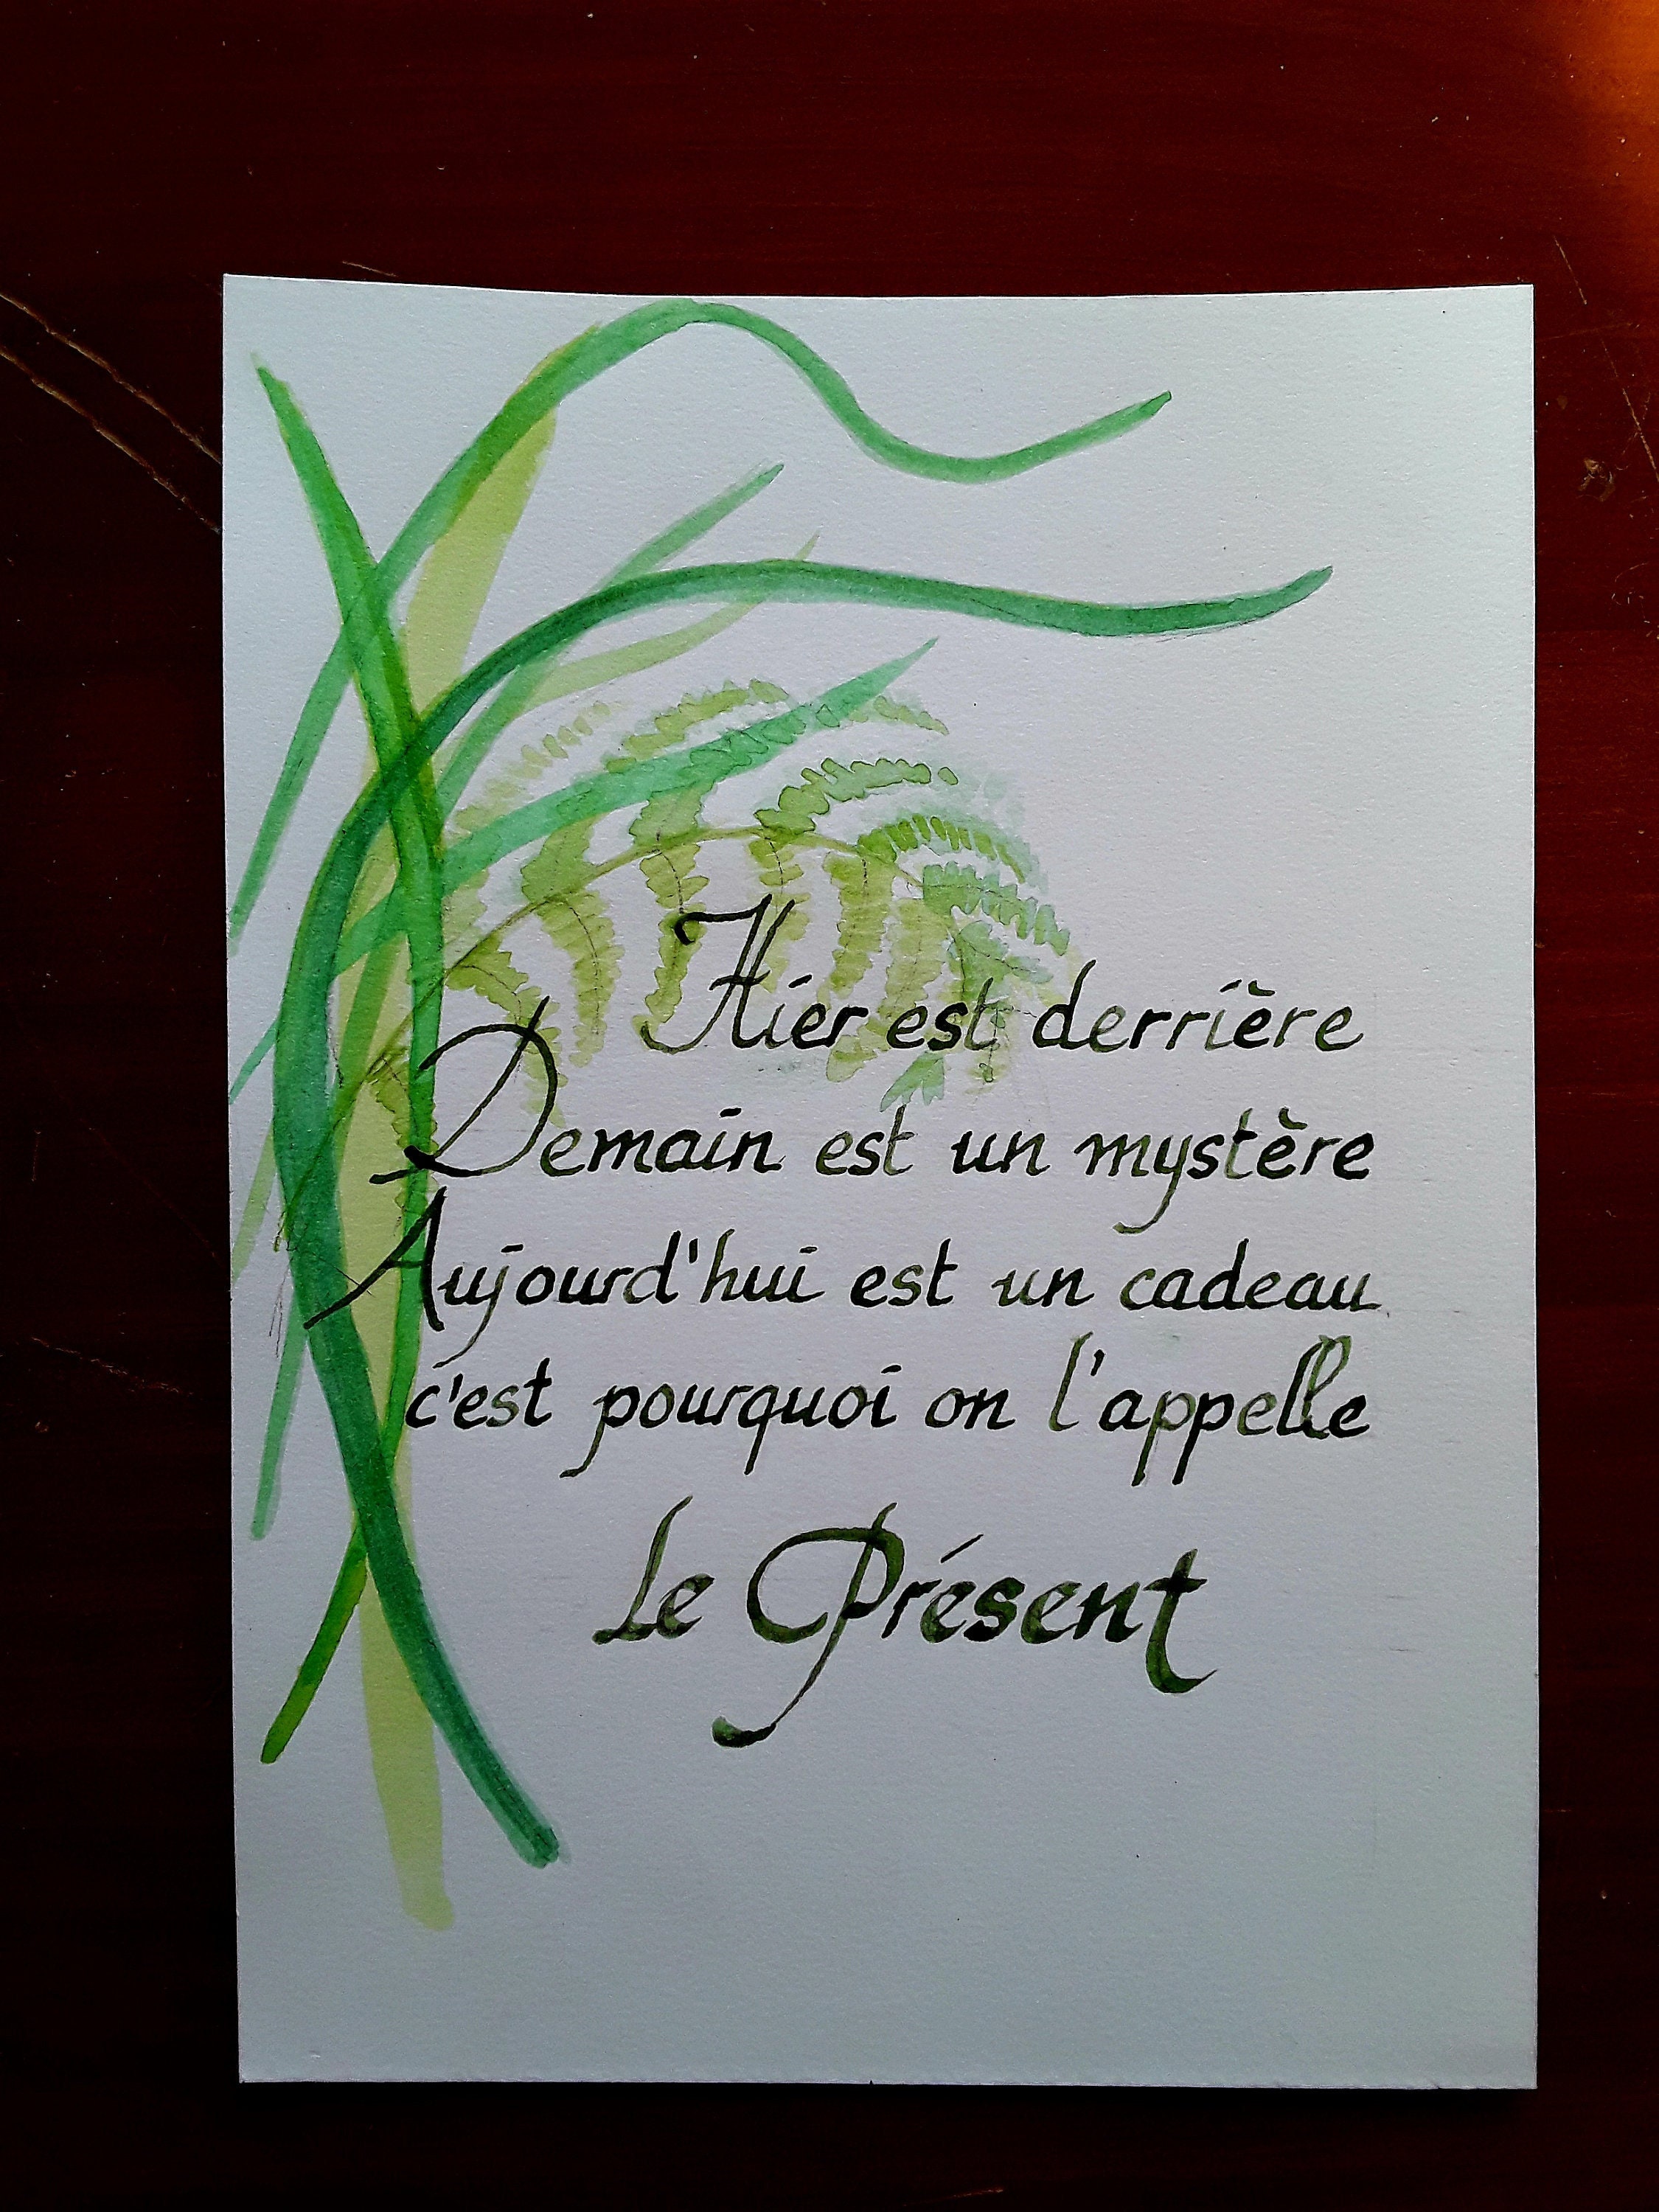 Hier est derrière
Demain est un mystère
Aujourd'hui est un cadeau
c'est pourquoi on l'appelle
Le Présent